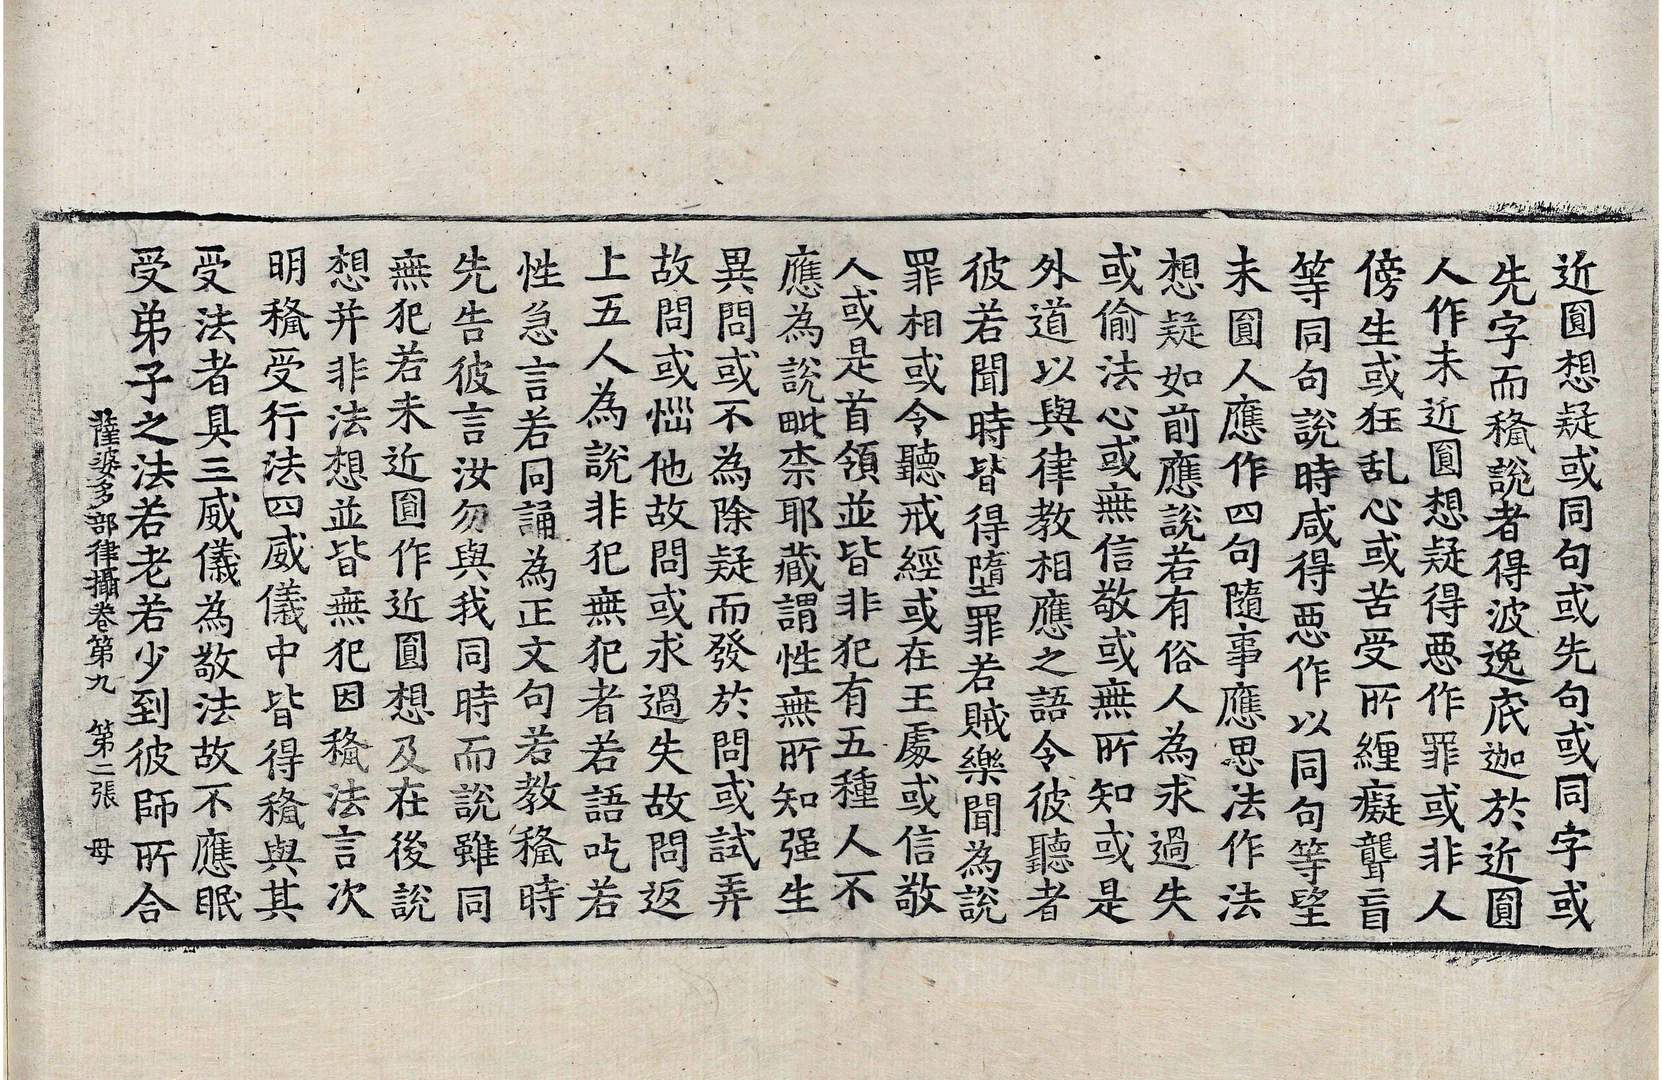 近圓想疑或同句或先句或同字或
先字而㮣說者得波逸底迦於近圓
人作未近圓想疑得惡作罪或非人
傍生或狂乱心或苦受所纏癡聾盲
等同句說時咸得惡作以同句等望
未圓人應作四句隨事應思法作法
想疑如前應說若有俗人為求過失
或偷法心或無信敬或無所知或是
外道以與律教相應之語令彼聽者
彼若聞時皆得墮罪若賊樂聞為說
罪相或令聽戒經或在王處或信敬
人或是首領並皆非犯有五種人不
應為說毗柰耶藏謂性無所知强生
異問或不為除疑而發於問或試弄
故問或惱他故問或求過失故問返
上五人為說非犯無犯者若語吃若
性急言若同誦為正文句若教㮣時
先告彼言汝勿與我同時而說雖同
無犯若未近圓作近圓想及在後說
想并非法想並皆無犯因㮣法言次
明㮣受行法四威儀中皆得㮣與其
受法者具三威儀為敬法故不應眠
受弟子之法若老若少到彼師所合
薩婆多部律攝卷第九 第二張 母